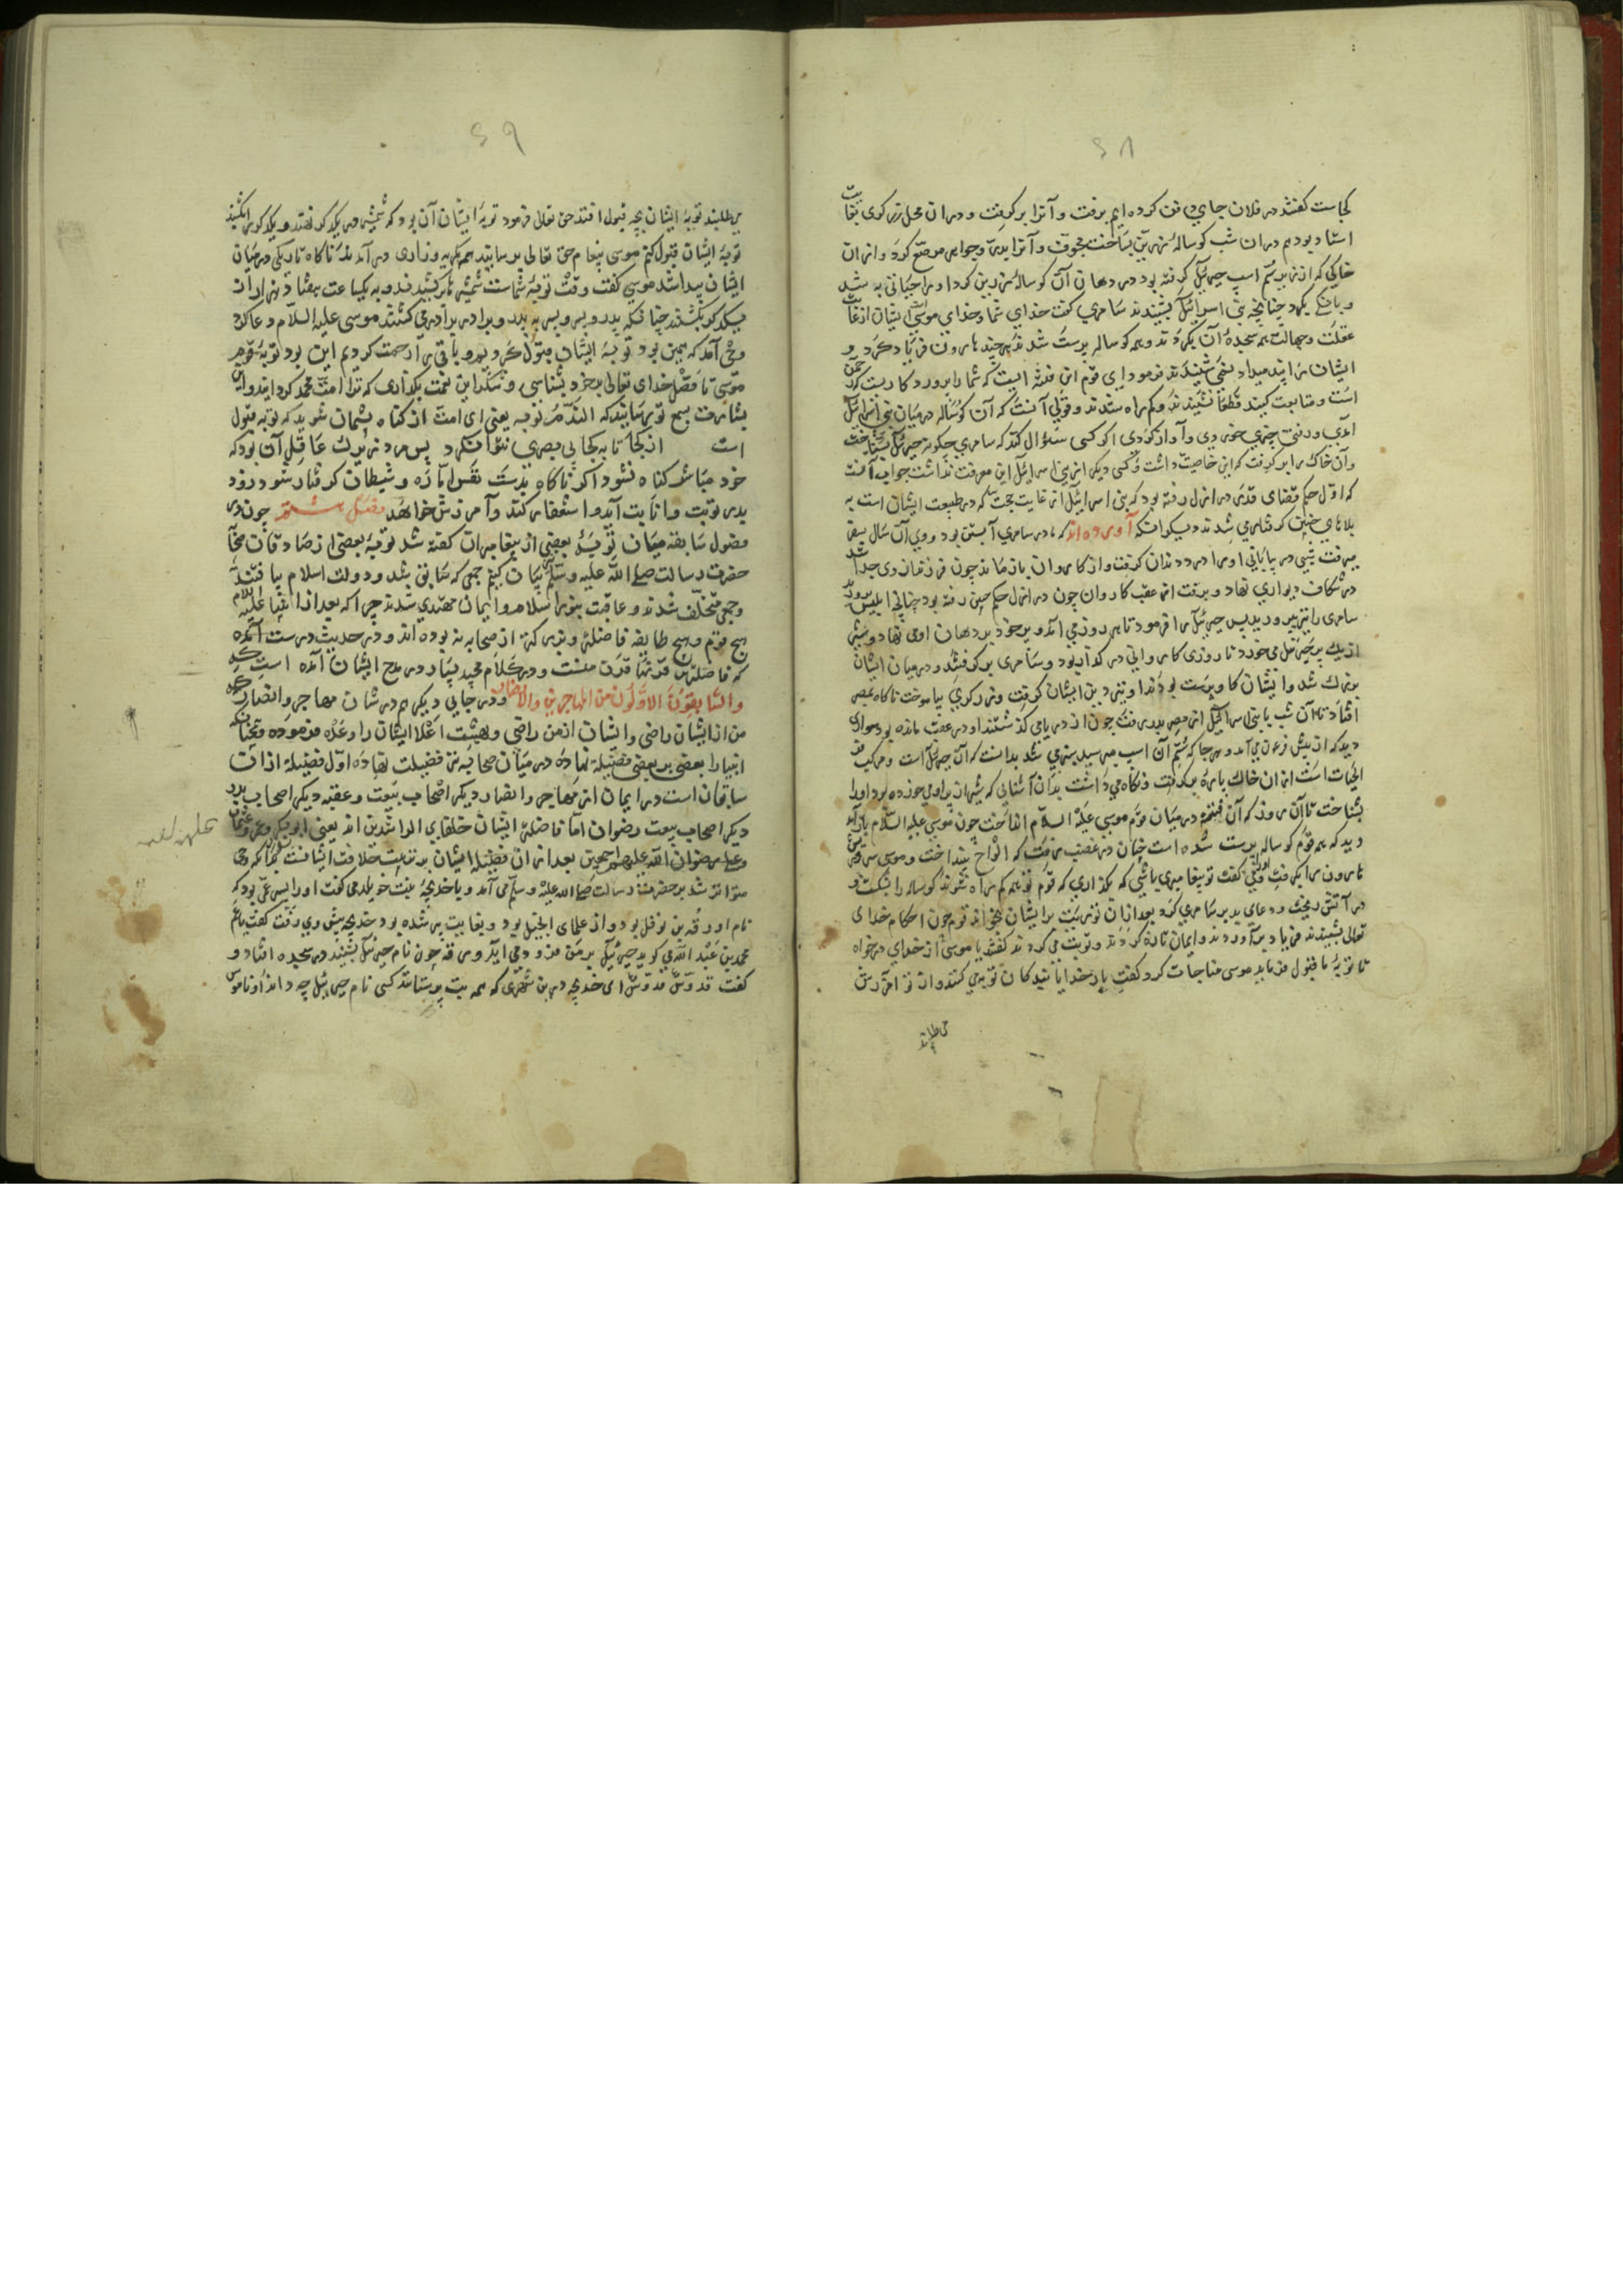 ٤٨
کجاست کفتند در فلان جای دفن کرده ایم برفت و آنرا بر کرفت و در ان محل زرکری بغایت
استاد بود هم در ان شب کوسالهٔ زرین بساخت مجوف و آنرا بدر و جواهر مرصع کرد و از ان
خاکی که از زیر سم اسپ جبرئیل کرفته بود در دهان آن کوساله زرین کرد او را حیاتی به شد
و بانکی بکرد چنانچه بنی اسرائیل بشنیدند سامری کفت خدای شما و خدای موسی ایشان از غایت
غفلت و جهالت همه سجدهٔ آن بکردند و همه کوساله پرست شدند هر چند هارون فریاد کرد و
ایشان را پند میداد نمی شنیدند فرمود ای قوم این فتنه ایست که شما را پروردکار رحمن
است و متابعت کنید قطعا نشنیدند و کمراه شدند و قولی آنست که آن کوساله در میان بنی اسرائیل
آمدی و رفتی چیزی خوردی و آواز کردی اکر کسی سؤال کند که سامری چکونه جبرئیل بشناخت
و آن خاک را بر کرفت که این خاصیت داشت و کسی دیکر از بنی اسرائیل این معرفت نداشت جواب آنست
که اول حکم قضای قدر در ازل رفته بود که بنی اسرائیل از غایت که در طبیعت ایشان است به
بلاهای چنین کرفتار می شدند دیکر آنکه آورده اند که مادر سامری آبستن بود و روی آن سال
میرفت شبی در بیابانی او را درد زدن کرفت و از کاروان باز ماند چون فرزند از وی جدا شد
در شکاف دیواری نهاد و برفت از عقب کاروان چون در ازل حکم چنین رفته بود چنانچه ابلیس پرورد
سامری را نیز پرورید پس جبرئیل را فرمود تا هر روز می آمد و پر خود بر دهان او می نهاد و شیر
از یک پر جبرئیل می خورد تا روزی کاروانی در کذار بود و سامری بر کرفتند و در میان ایشان
بزرک شد و ایشان کاو پرست بودند او نیز دین ایشان کرفت و زرکری بیاموخت تا کاه بمصر
افتاد تا آن شب با بنی اسرائیل از مصر بدر رفت چون از دریا می کذشتند او در عقب مانده بود سواری
دید که از پیش فرعون می آمد و هر جا که سم آن اسپ میرسید سبز می شد بدانست که آن جبرئیل است و مرکب
الحیات است از ان خاک پاره بر کرفت و نکاه میداشت بدان آشنایی که شیر از پر او می خورده بود او را
بشناخت تا آن روز که آن فتنه در میان قوم موسی علیه السلام انداخت چون موسی علیه السلام باز آمد
دید که همه قوم کوساله پرست شده است چنان در غضب رفت که الواح بینداخت و موسی سر و ریش
هارون را بکرفت و کفت تو پیغامبری باشی که بکذاری که قوم تو همه کمراه شوند کوساله را بشکست و
در آتش ریخت و دعای بد بر سامری کرد بعد از آن توریت بر ایشان بخواند قوم چون احکام خدای
تعالی بشنیدند فریاد بر آوردند و ایمان تازه کردند و توبت می کردند کفتند یا موسی از خدای در خواه
تا توبهٔ ما قبول فرماید موسی مناجات کرد کفت بار خدایا بندکان توبه می کنند و از تو آمرزش
می طلبند
٤٩
می طلبند توبهٔ ایشان بچه قبول افتد حق تعالی فرمود توبهٔ ایشان آن بود که شمشیر در یکدیکر نهند و یکدیکر را بکشند
توبهٔ ایشان قبول کنم موسی پیغام حق تعالی برسانید همه بکریه و زاری در آمدند تا کاه تاریکی در میان
ایشان پیدا شد موسی کفت وقت توبهٔ شماست شمشیرها بر کشیدند و به یکساعت هفتاد هزار از ان
یکدیکر بکشتند چنانکه پدر و پسر و پسر به پدر و برادر برادر می کشتند موسی علیه السلام دعا کرد
وحی آمد که همین بود توبهٔ ایشان قبول کردیم و باقی را رحمت کردیم این بود توبهٔ قوم
موسی تا فضل خدای تعالی بر خود بشناسی و شکر این نعمت بکذاری که ترا امت محمد کردانید و این
بشارت بسمع تو رسانید که الندم توبه یعنی ای امت از کناه پشیمان شوید که توبه قبول
است از کجا تا به کجا بی بصری نتوان کرد پس مرد زیرک عاقل آن بود که
خود مباشر کناه نشود اکر ناکاه بدست نفس اماره و شیطان کرفتار شود زود
بدر توبت و انابت آید و استغفار کند و آمرزش خواهد فصل ششم چون در
فصول سابقه میان توبهٔ بعضی از پیغامبران کفته شد توبهٔ بعضی از صادقان صحابه
حضرت رسالت صلی الله علیه و سلم بیان کنیم جمعی که سابق بشد و دولت اسلام بیافتند
و جمعی متخلف شدند و عاقبت بنور اسلام و ایمان مهتدی شدند چرا که بعد از انبیا علیهم السلام
هیچ قوم و هیچ طایفه فاضلتر و بزرکتر از صحابه نه بوده اند و در حدیث درست آمده
که فاضلترین قرنها قرن منست و در کلام مجید بسیار در مدح ایشان آمده است
والسابقون الاولون من المهاجرین والانصار و در جایی دیکر هم در شان مهاجر و انصار
من از ایشان راضی و ایشان از من راضی و بهشت اعلا ایشان را وعده فرموده و چنانکه
انبیا را بعضی بر بعضی فضیلت نهاده در میان صحابه نیز فضیلت نهاده اول فضیلت از ان
سابقان است در ایمان از مهاجر و انصار دیکر اصحاب بیعت و عقبه دیکر اصحاب بدر
دیکر اصحاب بیعت رضوان اما فاضلترین ایشان خلفای الراشدین اند یعنی ابوبکر و عمر و عثمان
و علی رضوان الله علیهم اجمعین بعد از ان فضیلت ایشان بر ترتیب خلافت ایشانست که وحی
متواتر شد بر حضرت رسالت صلی الله علیه و سلم می آمد و با خدیجه بنت خویلد می کفت او را پسر عمی بود که
نام او ورقه بن نوفل بود و از علمای انجیل بود و بغایت پیر شده بود خدیجه پیش وی رفت کفت یا عم
محمد بن عبد الله می کوید جبرئیل بر من فرود می آید ورقه چون نام جبرئیل بشنید در سجده افتاد و
کفت قدوس قدوس ای خدیجه درین شهری که همه بت پرستانند کسی نام جبرئیل چه داند او ناموس